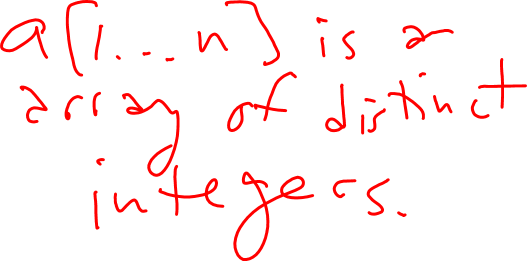 a[1...n] is a
array of distinct
integers.